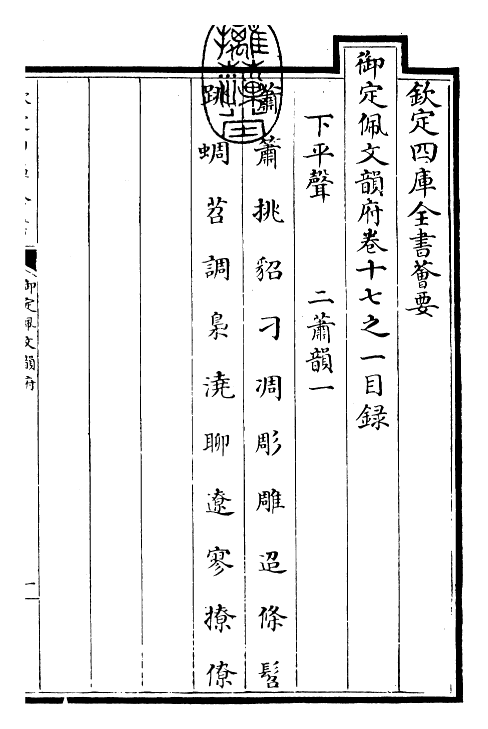 欽定四庫全書薈要
御定佩文韻府卷十七之一目錄
下平聲 二蕭韻一
蕭 簫 挑 貂 刁 凋 彫 雕 迢 條 髫
跳 蜩 苕 調 梟 澆 聊 遼 寥 撩 僚
御定佩文韻府 一